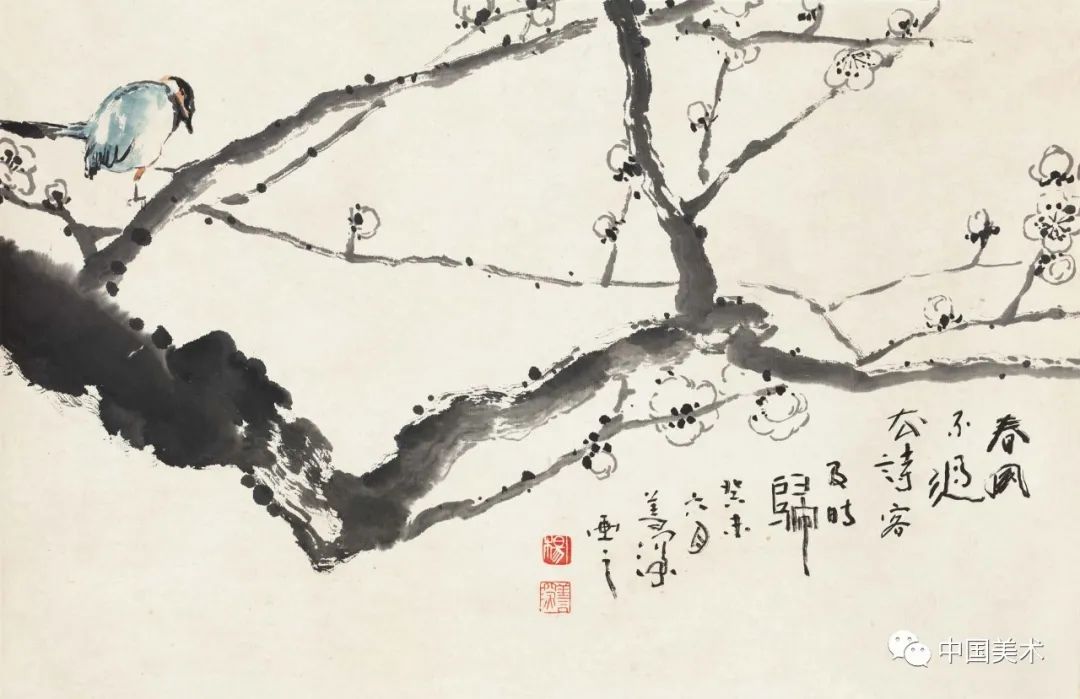 春
不
詩客
及時
歸
癸未
六月
善深
画之
楊
善深
中国美术